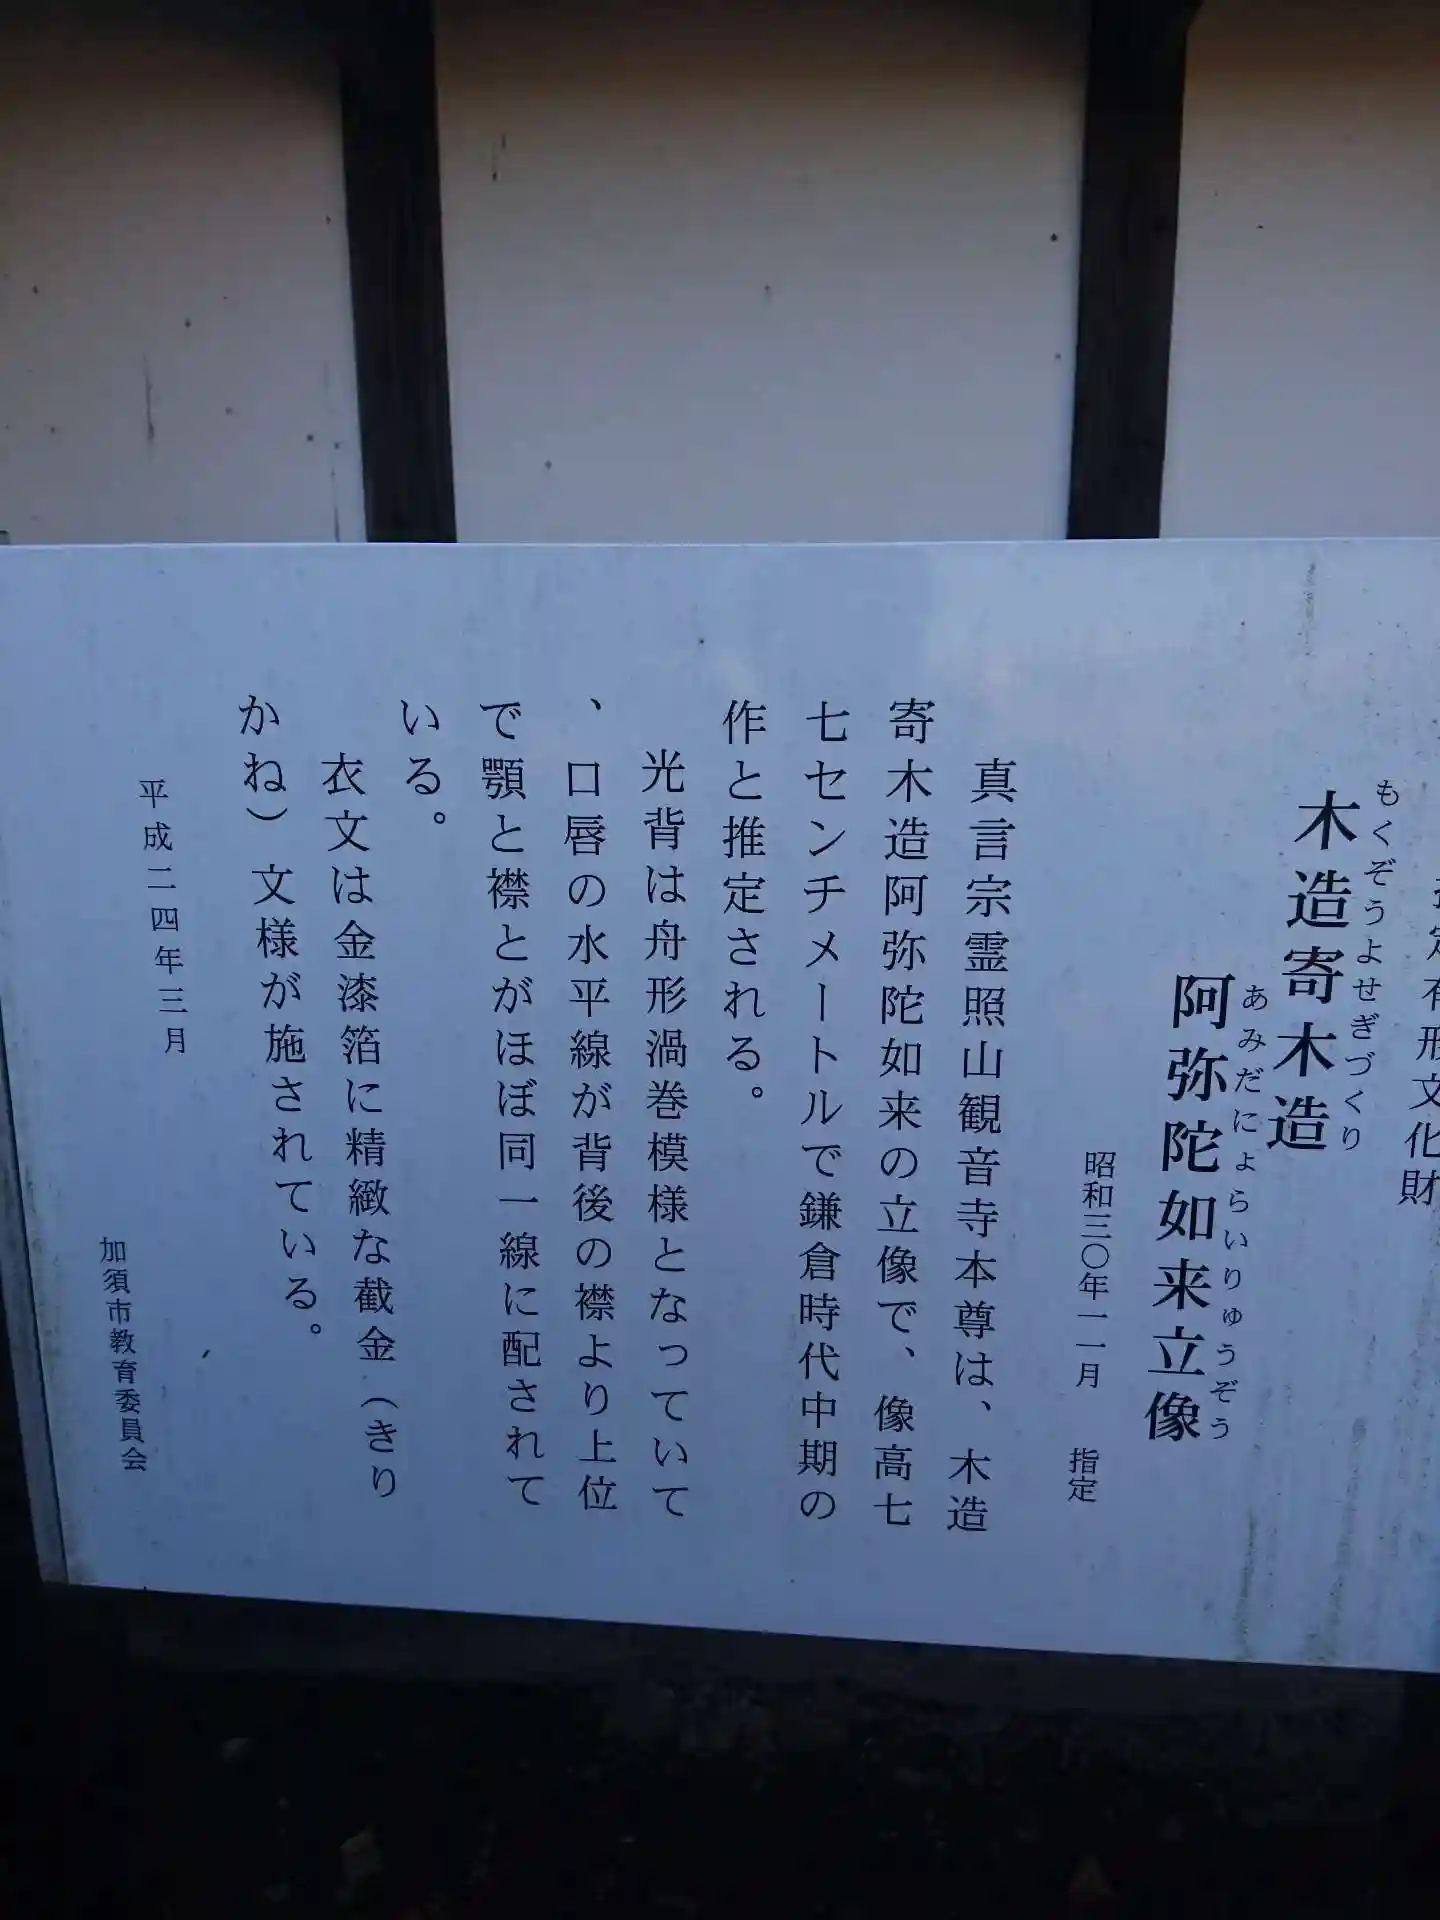 定有形文化財
木造寄木造
もくぞうよせぎづくり
阿弥陀如来立像
あみだにょらいりゅうぞう
昭和三〇年一一月 指定
真言宗霊照山観音寺本尊は、木造
寄木造阿弥陀如来の立像で、像高七
七センチメートルで鎌倉時代中期の
作と推定される。
光背は舟形渦巻模様となっていて
、口唇の水平線が背後の襟より上位
で顎と襟とがほぼ同一線に配されて
いる。
衣文は金漆箔に精緻な截金(きり
かね)文様が施されている。
平成二四年三月
加須市教育委員会